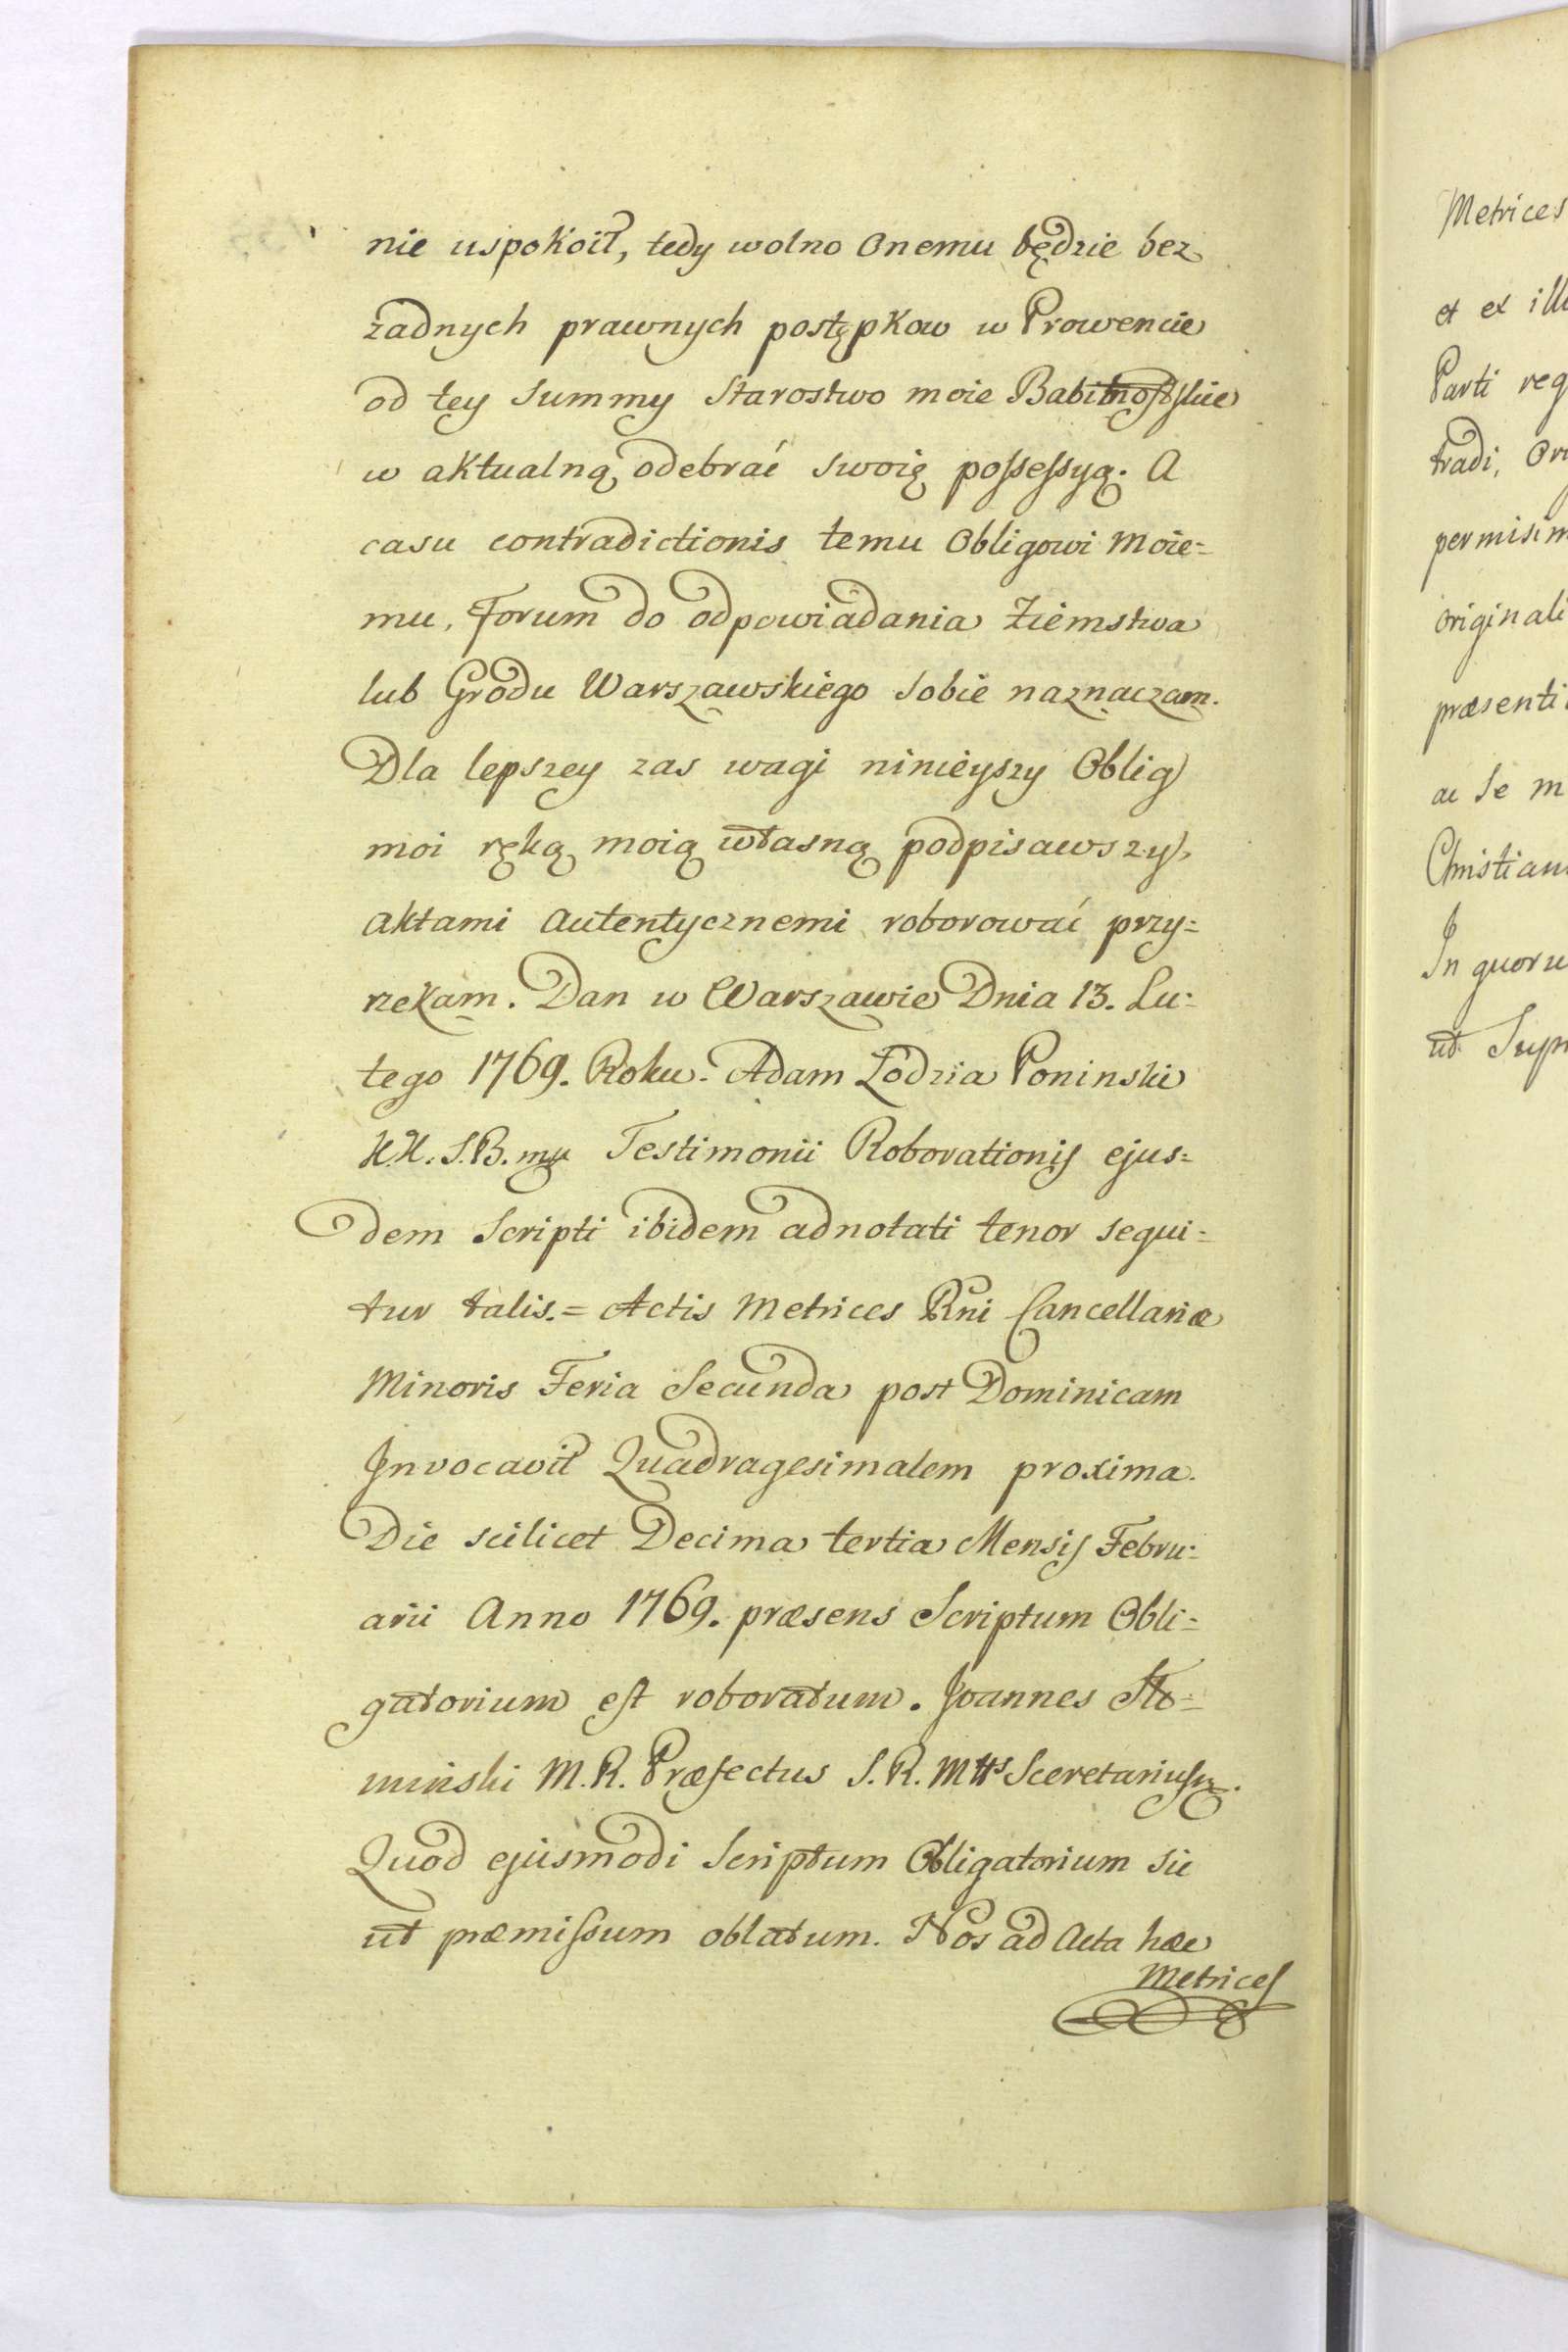 nie uspokoił, tedy wolno onemu będzie bez
zadnych prawnych postępkow w Prowencie
od tęy Summy Starostwo moie Babimostskie
w aktualną odebrać Swoię possessyą. A
casu contradictionis temu Obligowi Moie=
mu, Forum do odpowiadania Ziemstwa
lub Grodu Warszawskiego Sobie naznaczam.
Dla lepszey zas wagi ninieyszy Oblig
moi ręką moią własną podpisawszy,
aktami autentycznemi roborować przy=
rzekam. Dan w Warszawie Dnia 13. Lu=
tego 1769. Roku. Adam Łodzia Poninski
K.K. S.B. mp Testimonii Roborationis ejus=
dem Scripti ibidem adnotati tenor sequi=
tur talis.= Actis Metrices Rni Cancellariæ
Minoris Feria Secunda post Dominicam
Invocavit Quadragesimalem proxima.
Die scilicet Decima tertia Mensis Febru=
arii Anno 1769. præsens Scriptum Obli=
gatorium est roboratum. Joannes Sło=
minski M.R. Præfectus S.R. Mtts Secretarius
Quod ejusmodi Scriptum Obligatorium sic
ut præmissum oblatum. Nos ad Acta hæc
Metrices
Metrices
et ex ill
Parti req
tradi, Ori
permisim
originali
præsenti
ac Se m
Christian
In quoru
ut Supr